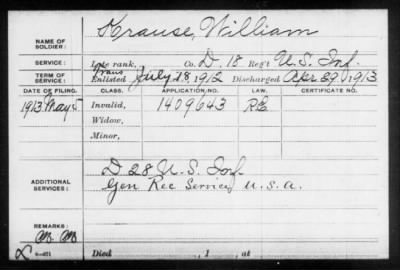 Krause, William
NAME OF SOLDIER:
SERVICE: Late rank, Co. D, 18 Reg't U.S. Inf.
TERM OF SERVICE: Trans Enlisted July 18, 1912 Discharged Apr 29, 1913
DATE OF FILING. CLASS. APPLICATION NO. LAW. CERTIFICATE NO.
1913 May 5 Invalid, 1409643 R.E.
Widow,
Minor,
ADDITIONAL SERVICES: D 28 U.S. Inf.
Gen Rec Service, U.S.A.
REMARKS:
Died , 1 , at